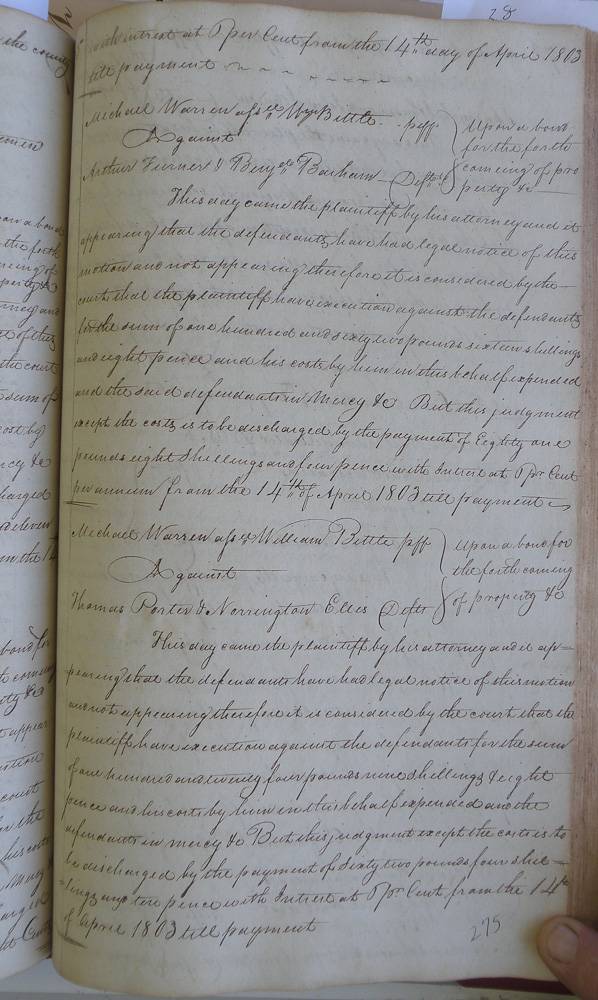 with interest at 5 per Cent from the 14th day of April 1803
till payment
Michael Warren assee Wm Bittle plff
Against
Arthur Turner & Benj Barham Defts
Upon a bond
for the forth
coming of pro
perty &c
This day came the plaintiff by his attorney and it
appearing that the defendants have had legal notice of this
motion and not appearing therefore it is considered by the
court that the plaintiff have execution against the defendants
for the sum of one hundred and sixty two pounds sixteen shillings
and eight pence and his costs by him in this behalf expended
and the said defendants in Mercy &c But this judgment
except the costs is to be discharged by the payment of Eighty one
pounds eight Shillings and four pence with Interest at 5 pr Cent
per annum from the 14th of April 1803 till payment
Michael Warren assee William Bittle plff
Against
Thomas Porter & Norrington Ellis Defts
Upon a bond for
the forth coming
of property &c
This day came the plaintiff by his attorney and it ap=
pearing that the defendants have had legal notice of this motion
and not appearing therefore it is considered by the court that the
plaintiff have execution against the defendants for the sum
of one hundred and twenty four pounds nine shillings & eight
pence and his costs by him in this behalf expended and the
defendants in mercy &c But this judgment except the costs is to
be discharged by the payment of Sixty two pounds four shil=
=lings and ten pence with Interest at 5 pr Cent from the 14th
of April 1803 till payment
275
28